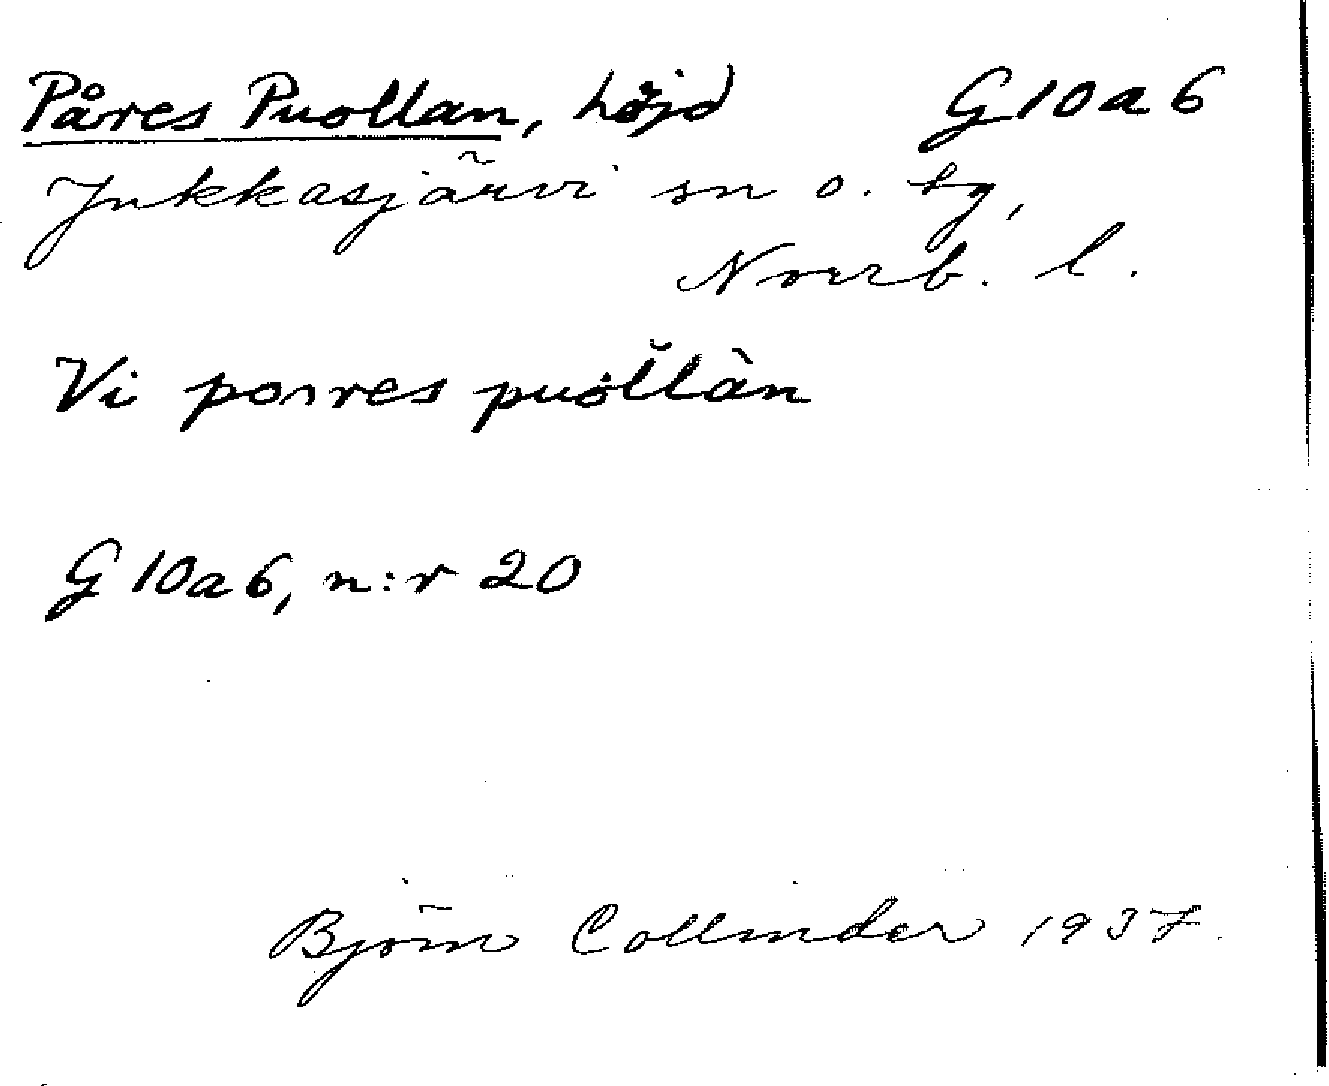 Påres Puollan, höjd G10a6
Jukkasjärvi sn o. tg,
Norrb. l.
Vi porres puŏllàn
G 10a6, n:r 20
Björn Collinder 1937.